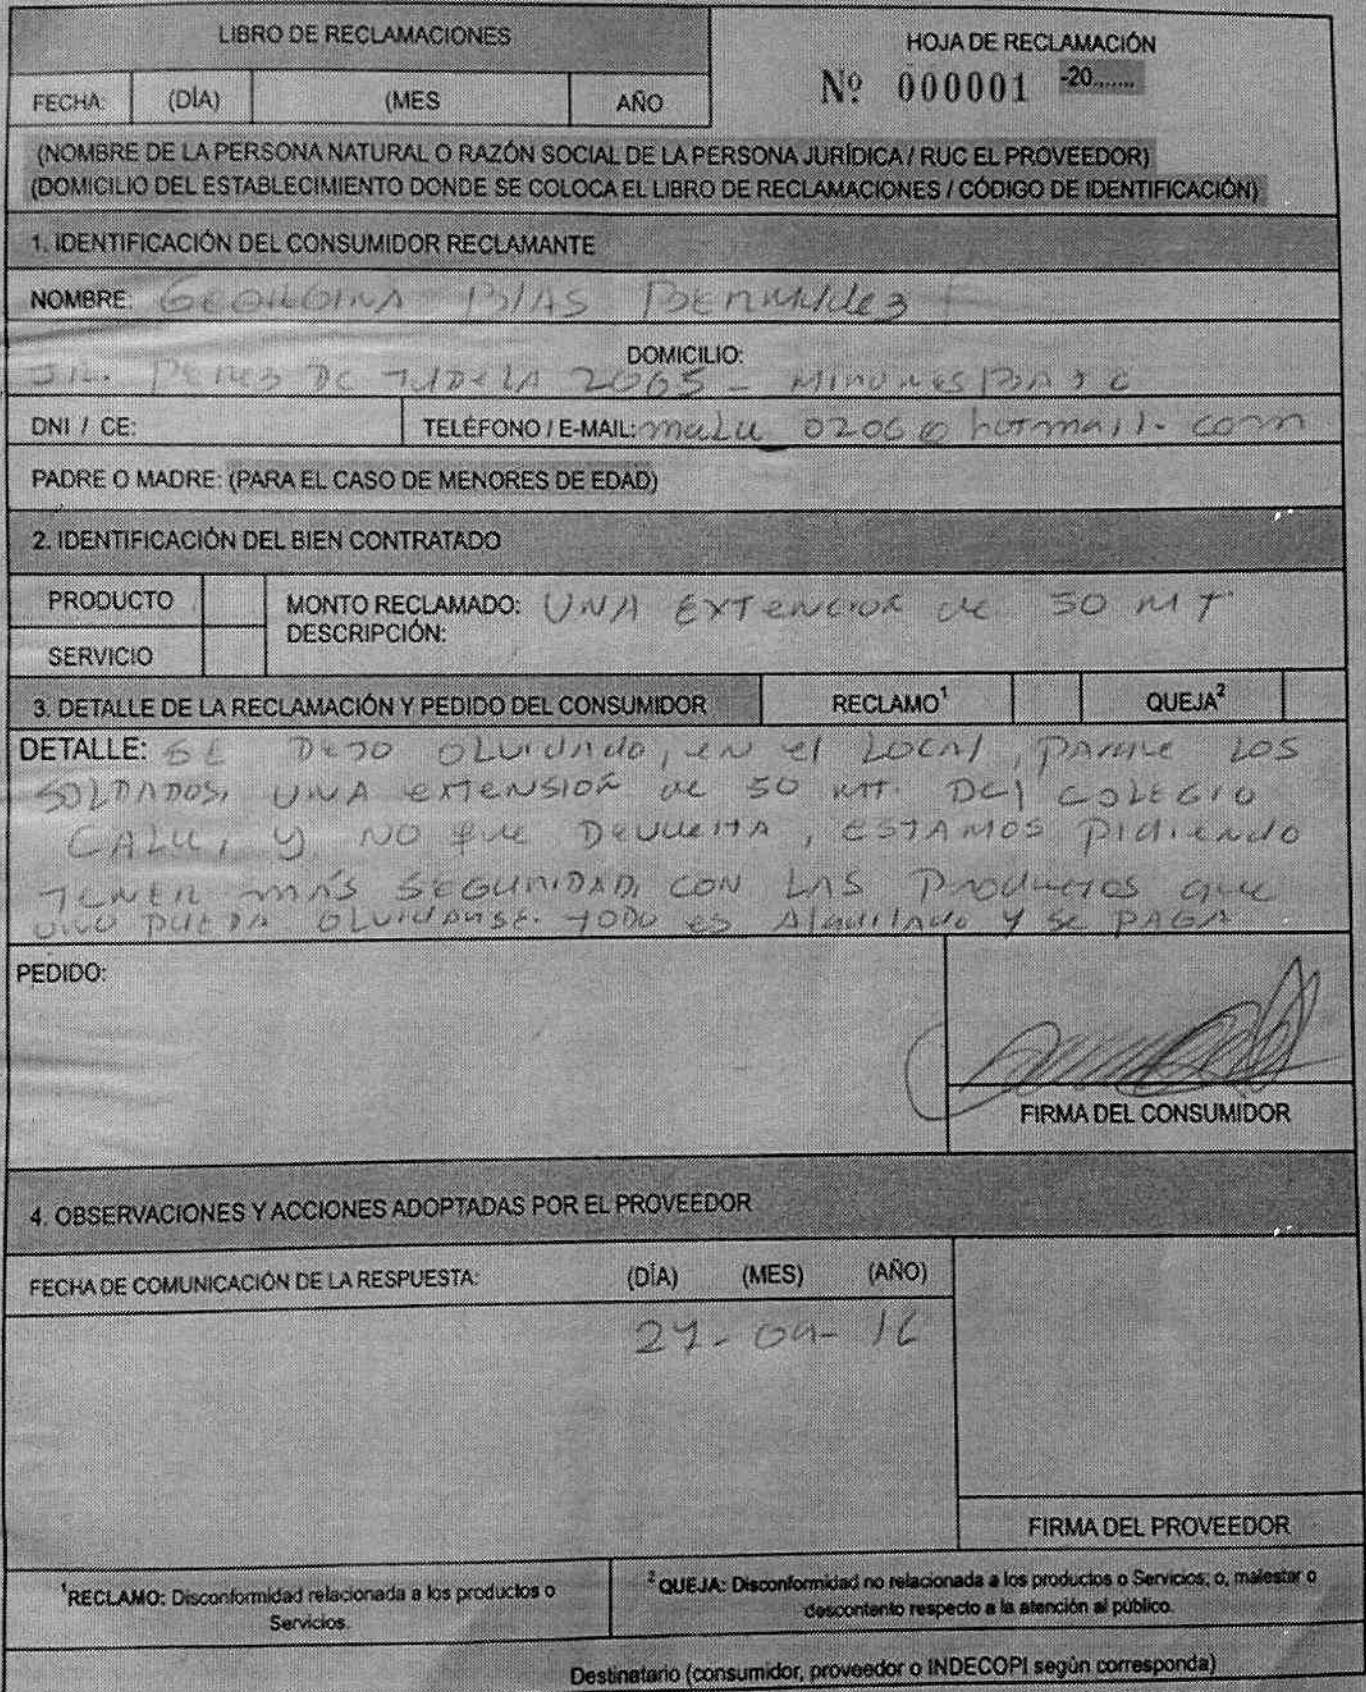 LIBRO DE RECLAMACIONES
HOJA DE RECLAMACIÓN
Nº 000001 -20.......
FECHA: (DÍA) (MES AÑO
(NOMBRE DE LA PERSONA NATURAL O RAZÓN SOCIAL DE LA PERSONA JURÍDICA / RUC EL PROVEEDOR)
(DOMICILIO DEL ESTABLECIMIENTO DONDE SE COLOCA EL LIBRO DE RECLAMACIONES / CÓDIGO DE IDENTIFICACIÓN)
1. IDENTIFICACIÓN DEL CONSUMIDOR RECLAMANTE
NOMBRE: GEORGINA BLAS BERMUDEZ
DOMICILIO:
JR. PEREZ DE TUDELA 2065 - MIRONES BAJO
DNI / CE: TELÉFONO / E-MAIL: malu 0206@hotmail.com
PADRE O MADRE: (PARA EL CASO DE MENORES DE EDAD)
2. IDENTIFICACIÓN DEL BIEN CONTRATADO
PRODUCTO
MONTO RECLAMADO: UNA EXTENCION de 50 MT
DESCRIPCIÓN:
SERVICIO
3. DETALLE DE LA RECLAMACIÓN Y PEDIDO DEL CONSUMIDOR RECLAMO¹ QUEJA²
DETALLE: SE DEJO OLVIDADO, en el LOCAL, PARQUE LOS
SOLDADOS, UNA EXTENSION de 50 MT. DEL COLEGIO
CALU, Y NO fue DEVUELTA, ESTAMOS Pidiendo
TENER MÁS SEGURIDAD, CON LAS Productos que
UNO PUEDA OLVIDARSE. TODO es Alquilado Y se PAGA
PEDIDO:
FIRMA DEL CONSUMIDOR
4. OBSERVACIONES Y ACCIONES ADOPTADAS POR EL PROVEEDOR
FECHA DE COMUNICACIÓN DE LA RESPUESTA: (DÍA) (MES) (AÑO)
FIRMA DEL PROVEEDOR
¹RECLAMO: Disconformidad relacionada a los productos o
Servicios.
² QUEJA: Disconformidad no relacionada a los productos o Servicios; o, malestar o
descontento respecto a la atención al público.
Destinatario (consumidor, proveedor o INDECOPI según corresponda)